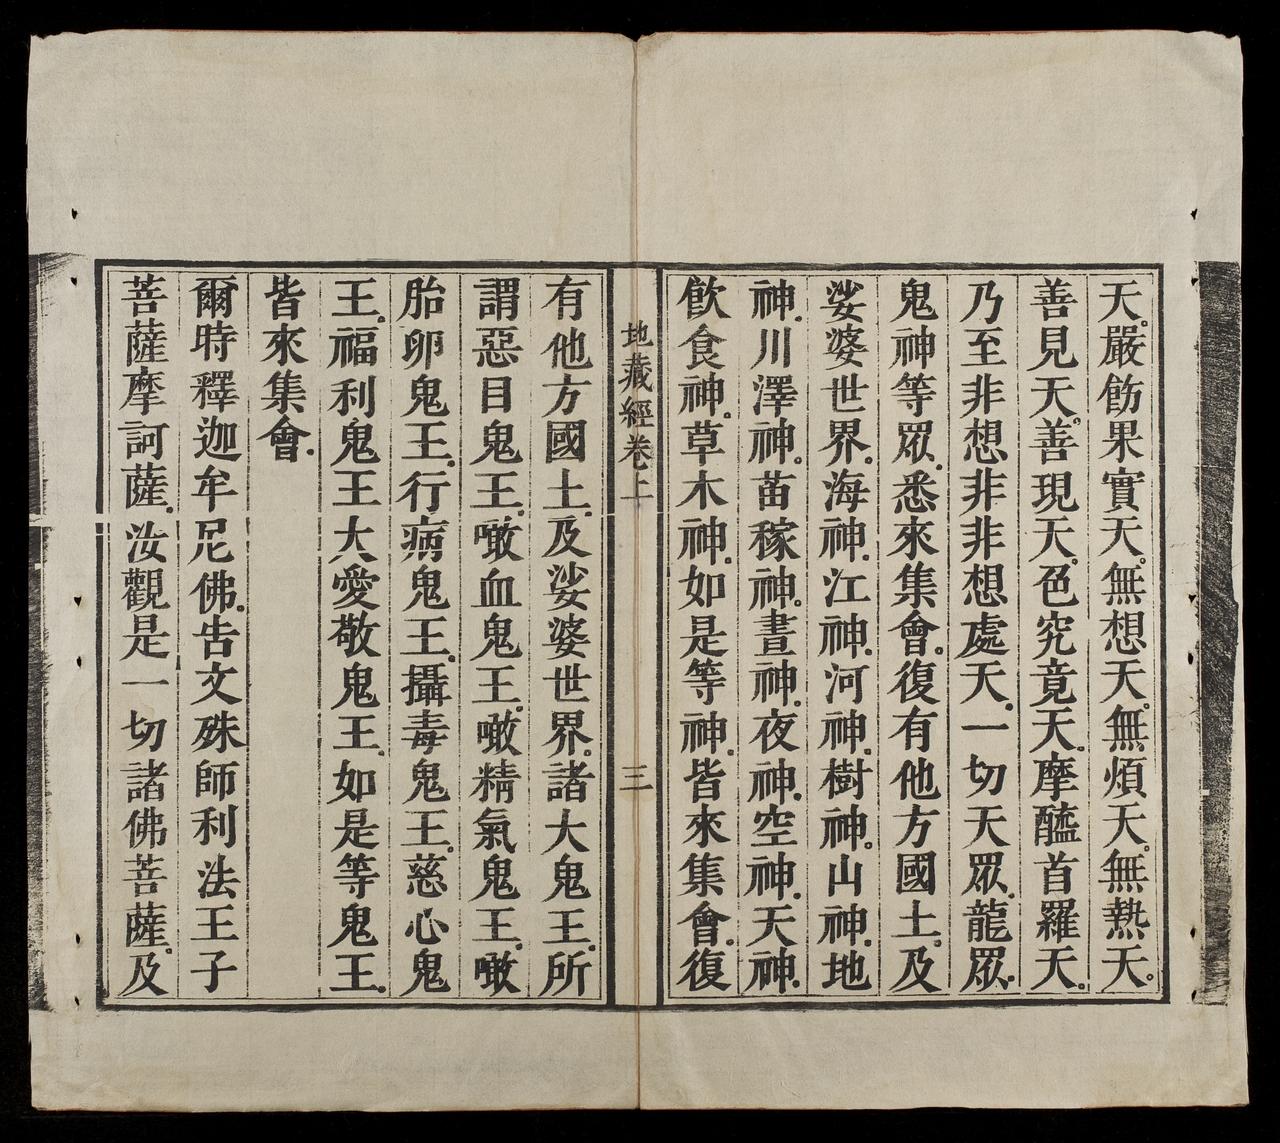 天。嚴飭果實天。無想天。無煩天。無熱天。
善見天。善現天。色究竟天。摩醯首羅天。
乃至非想非非想處天。一切天眾。龍眾。
鬼神等眾。悉來集會。復有他方國土。及
娑婆世界。海神。江神。河神。樹神。山神。地
神。川澤神。苗稼神。晝神。夜神。空神。天神。
飲食神。草木神。如是等神。皆來集會。復
地藏經卷上
三
有他方國土。及娑婆世界。諸大鬼王。所
謂惡目鬼王。噉血鬼王。噉精氣鬼王。噉
胎卵鬼王。行病鬼王。攝毒鬼王。慈心鬼
王。福利鬼王大愛敬鬼王。如是等鬼王。
皆來集會。
爾時釋迦牟尼佛。告文殊師利法王子
菩薩摩訶薩。汝觀是一切諸佛菩薩。及